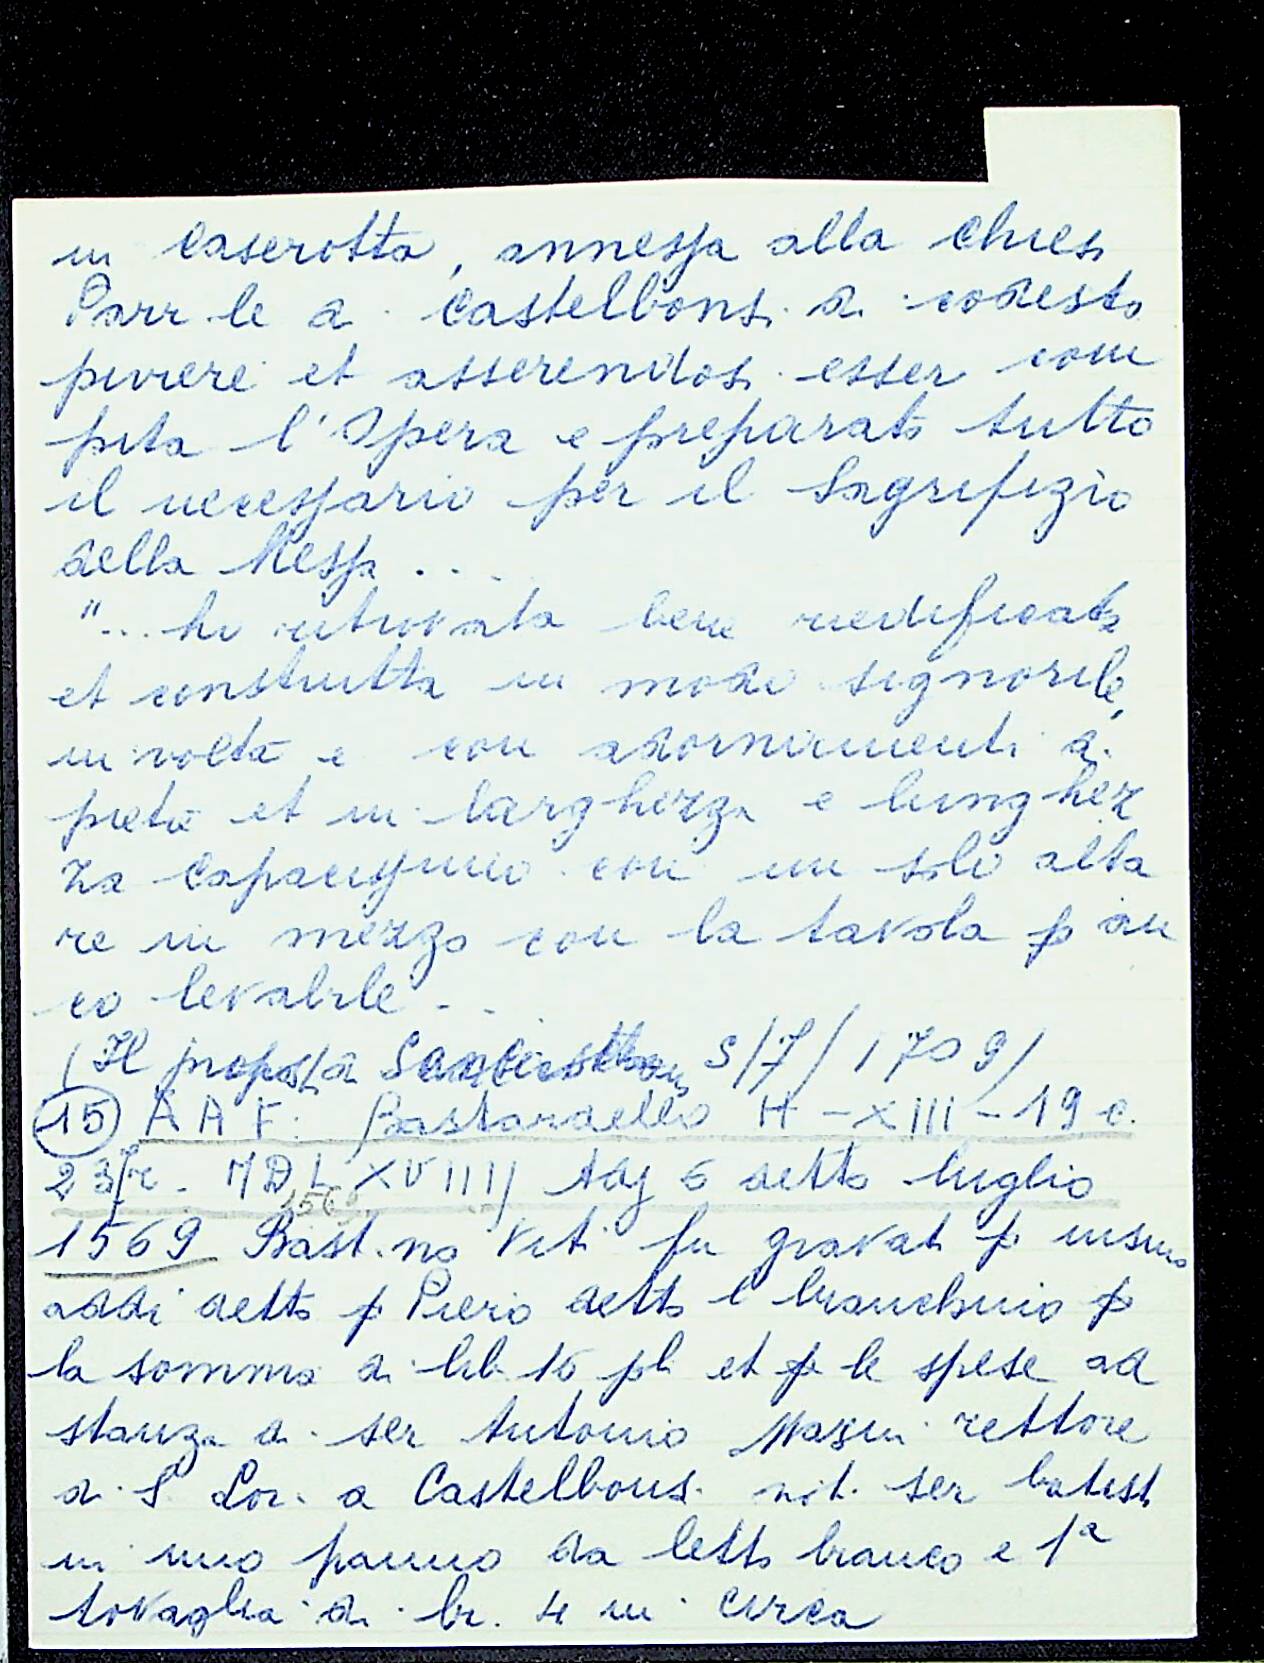 in Caserotta, annessa alla chiesa
Parr.le di Castelbonsi di codesto
piviere et asserendosi esser com
pita l'Opera e preparato tutto
il necessario per il Sagrifizio
della Messa ...
"... ho ritrovata bene riedificata
et construtta in modo signorile,
in volta e con adornimenti di
pietà et in larghezza e lunghez
za capacissimo con un solo alta
re in mezzo con la tavola p an
co levabile ...
(Il proposto 5/7/1709)
(15) A A F. Bastardello H - XIII - 19 c.
23/r. MDLXVIIII Adj 6 detto luglio
1569
1569 Bast.no Vet. fu gravat p
addi detto p Piero detto l branchino p
la somma di lib. 16 pl et p le spese ad
stanza di ser Antonio Masini rettore
di S Lor. a Castelbonsi not. ser batist
in uno panno da letto bianco e 1ª
tovaglia di br. 4 in circa